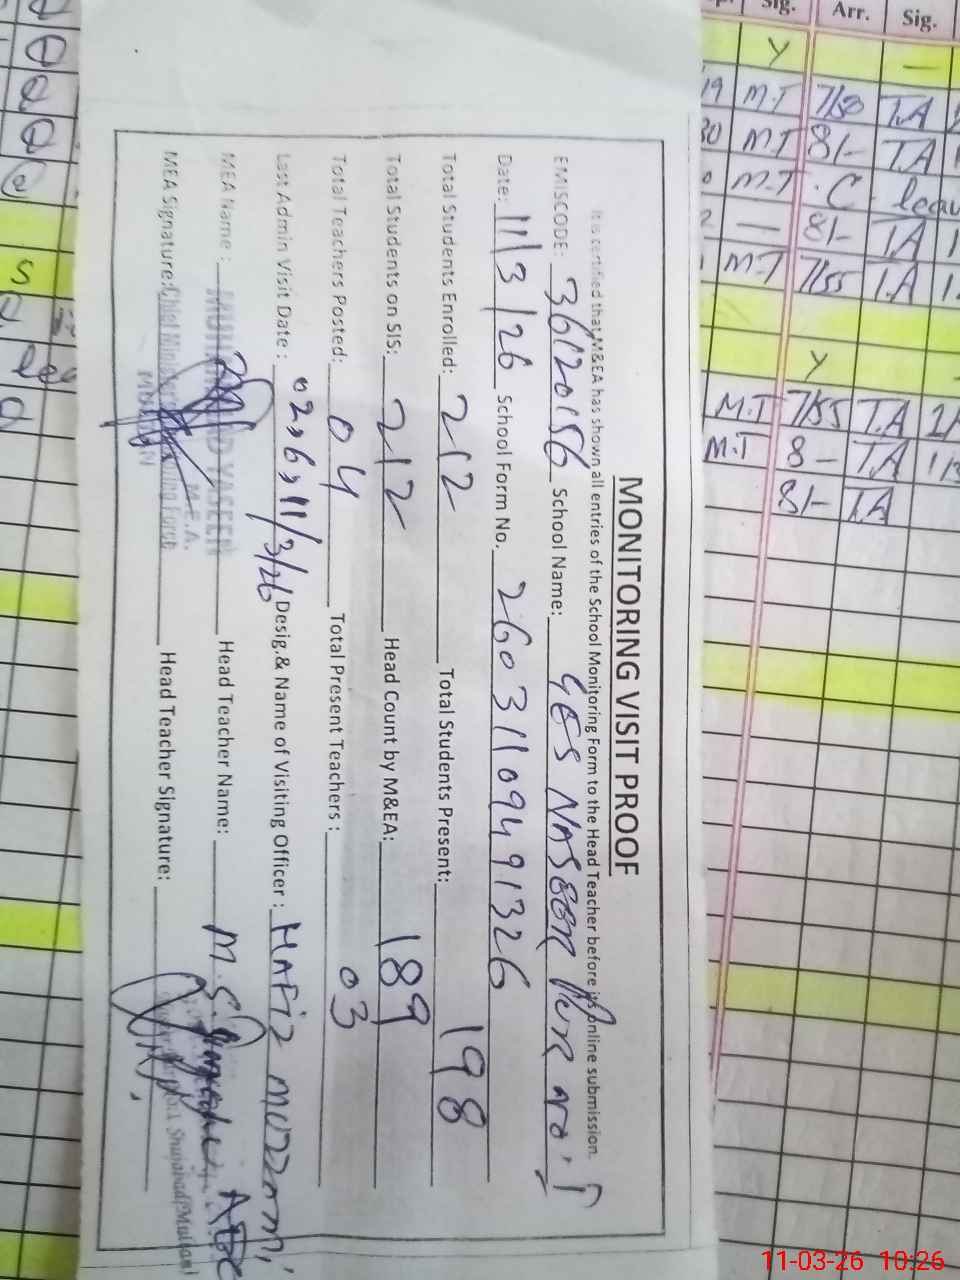 MONITORING VISIT PROOF
It is certified that M&EA has shown all entries of the School Monitoring Form to the Head Teacher before its online submission.
EMISCODE: 36120156 School Name: GES NASEER PUR
Date: 11/3/26 School Form No. 26031109491326
Total Students Enrolled: 212 Total Students Present: 198
Total Students on SIS: 212 Head Count by M&EA: 189
Total Teachers Posted: 04 Total Present Teachers: 03
Last Admin Visit Date: 11/3/26 Desig.& Name of Visiting Officer: HAFIZ MUZZAMI
MEA Name: YASEEN Head Teacher Name: M.
M.E.A.
MEA Signature: Chief Minister's Monitoring Force Head Teacher Signature:
Shujabad (Multan)
Sig. Arr. Sig.
Y —
19 M.T 7/50 T.A
30 M.T 8/- T.A
M.T C. leav
— 8/- T.A
M.T 7/55 T.A
Y
M.T 7/55 T.A
M.T 8 - T.A
8/- T.A
S
11-03-26 10:26